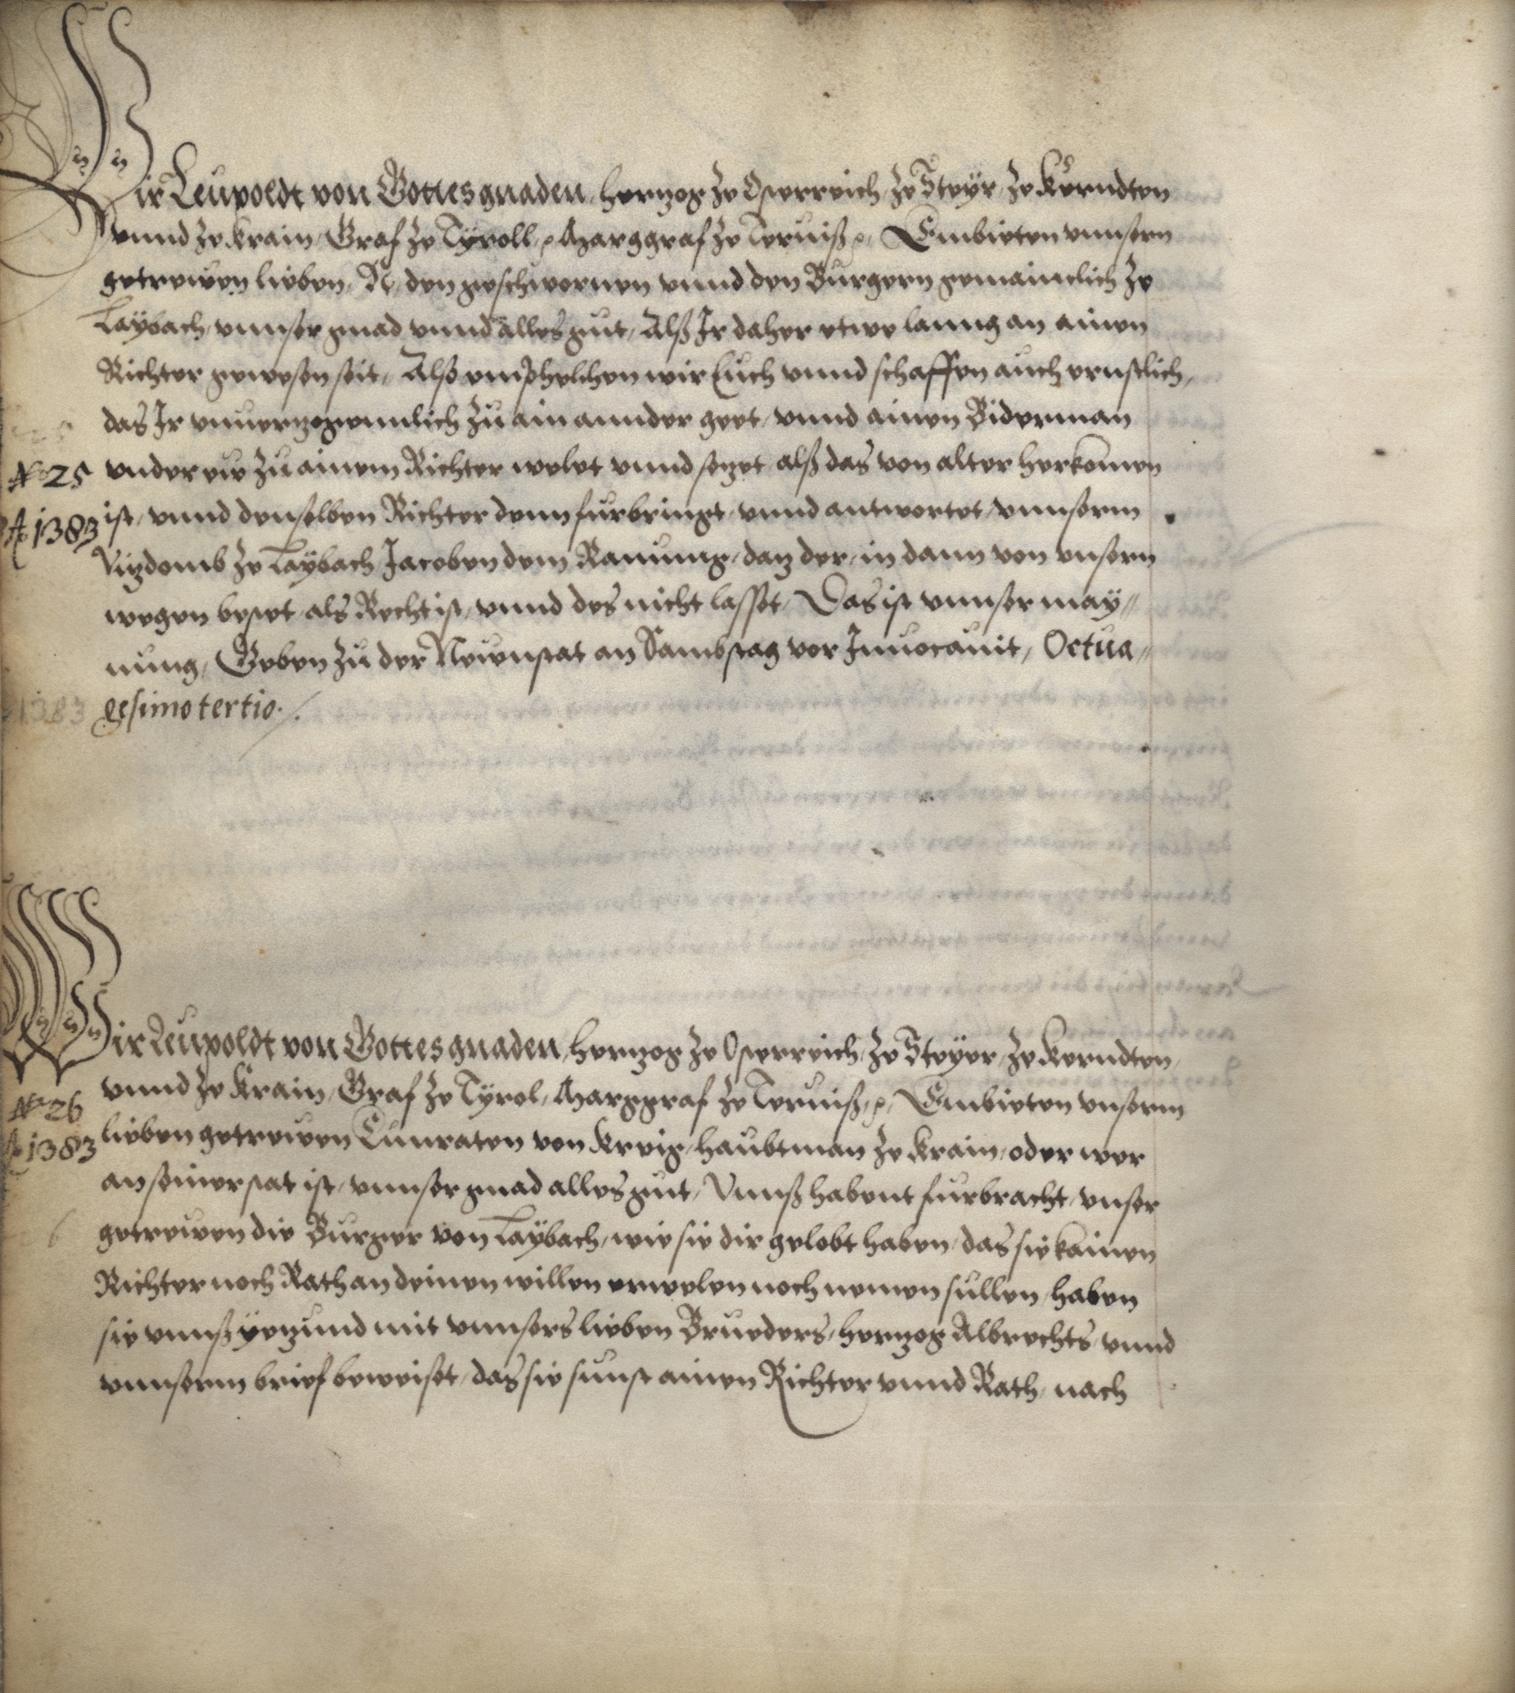 Wir Leupoldt von Gottes gnaden, hertzog ze Osterreich, ze Steyr, ze Kerndten
vnnd ze Krain, Graf ze Tyroll, Marggraf ze Teruiß, Embieten vnnsern
getrewen lieben, N. den geschwornen vnnd den Burgern gemainclich ze
Laybach, vnnser gnad vnnd alles gut, Alß Ir daher etwe lanng an ainen
Richter gewesen seit, Alß emphelchen wir Euch vnnd schaffen auch ernstlich,
das Ir vnuerzogennlich zu ain annder geet, vnnd ainen Biderman
No 25 vnder ew zu ainem Richter welet vnnd setzet alß das von alter herkomen
Ao 1383 ist, vnnd denselben Richter denn furbringt, vnnd antwortet, vnnserm
Vizdomb ze Laybach, Jacoben dem Ramung, daz der, in dann von vnsern
wegen bestet als Recht ist, vnnd des nicht lasset, Das ist vnnser may„
nung, Geben zu der Newenstat an Sambstag vor Inuocauit, Octua„
1383 gesimo tertio.
Wir Leupoldt von Gottes gnaden, hertzog ze Osterreich, ze Steyer, ze Kerndten,
vnnd ze Krain, Graf ze Tyrol, Marggraf ze Teruiß, Embieten vnserm
No 26
Ao 1383 lieben getrewen Cunraten von Kreig, haubtman ze Krain, oder wer
an seiner stat ist, vnnser gnad alles gut, Vnnß habent furbracht, vnser
getrewen die Burger von Laybach, wie sie dir gelobt haben, das sie kainen
Richter noch Rath an deinen willen erwelen noch nemen sullen, haben
sie vnnß yetzund mit vnnsers lieben Brueders, hertzog Albrechts, vnnd
vnnserm brief beweiset, das sie sunst ainen Richter vnnd Rath, nach